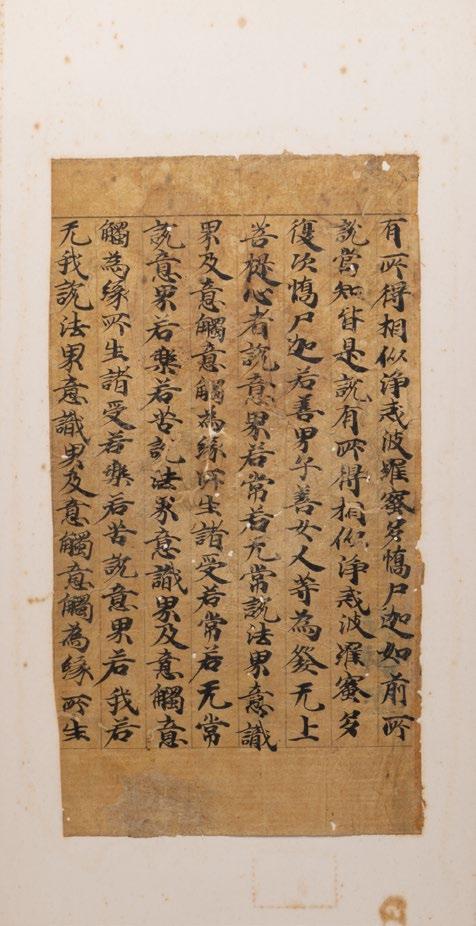 有所得相似淨戒波羅蜜多憍尸迦如前所
說當知皆是說有所得相似淨戒波羅蜜多
復次憍尸迦若善男子善女人等為發无上
菩提心者說意界若常若无常說法界意識
界及意觸意觸為緣所生諸受若常若无常
說意界若樂若苦說法界意識界及意觸意
觸為緣所生諸受若樂若苦說意界若我若
无我說法界意識界及意觸意觸為緣所生